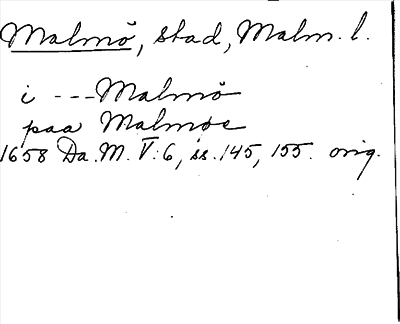 Malmö, stad, Malm. l.
i --- Malmö
paa Malmøe
1658 Da. M. V:6, ss. 145, 155. orig.